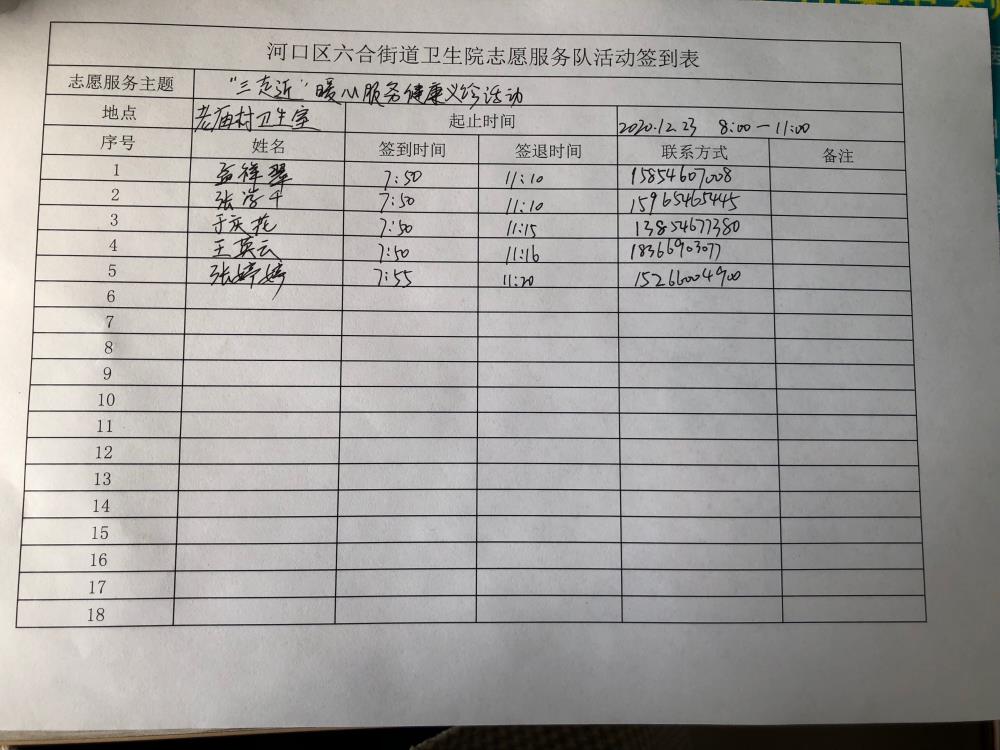 河口区六合街道卫生院志愿服务队活动签到表
志愿服务主题 "三走近"暖心服务健康义诊活动
地点 老庙村卫生室 起止时间 2020.12.23 8:00—11:00
序号 姓名 签到时间 签退时间 联系方式 备注
1 7:50 11:10 15854607008
2 张 7:50 11:10 15965465445
3 于庆花 7:50 11:15 13854677380
4 王英云 7:50 11:16 18366903077
5 张婷婷 7:55 11:20 15266004900
6
7
8
9
10
11
12
13
14
15
16
17
18